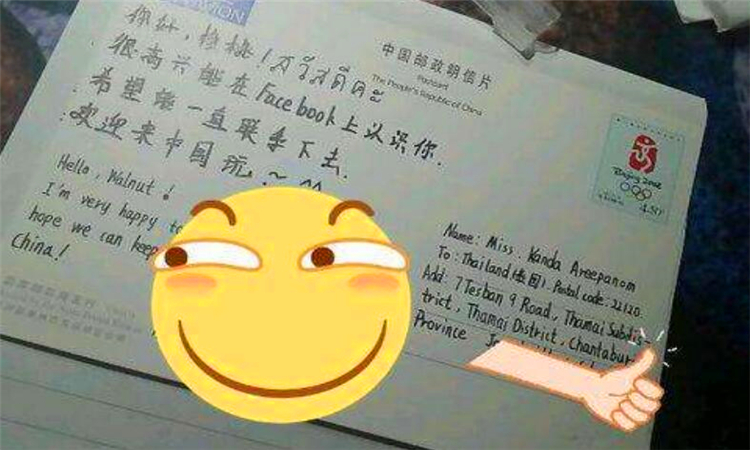 AVION
你好,核桃!สวัสดีค่ะ
很高兴能在Facebook上认识你.
希望能一直联系下去.
欢迎来中国玩.~
Hello, Walnut!
I'm very happy to
hope we can keep
China!
中国邮政明信片
Postcard
The People's Republic of China
Beijing 2008
Name: Miss. Kanda Areepanom
To: Thailand(泰国). Postal code: 22120.
Add: 7 Tesban 9 Road, Thamai Subdis-
trict, Thamai District, Chantabur
Province